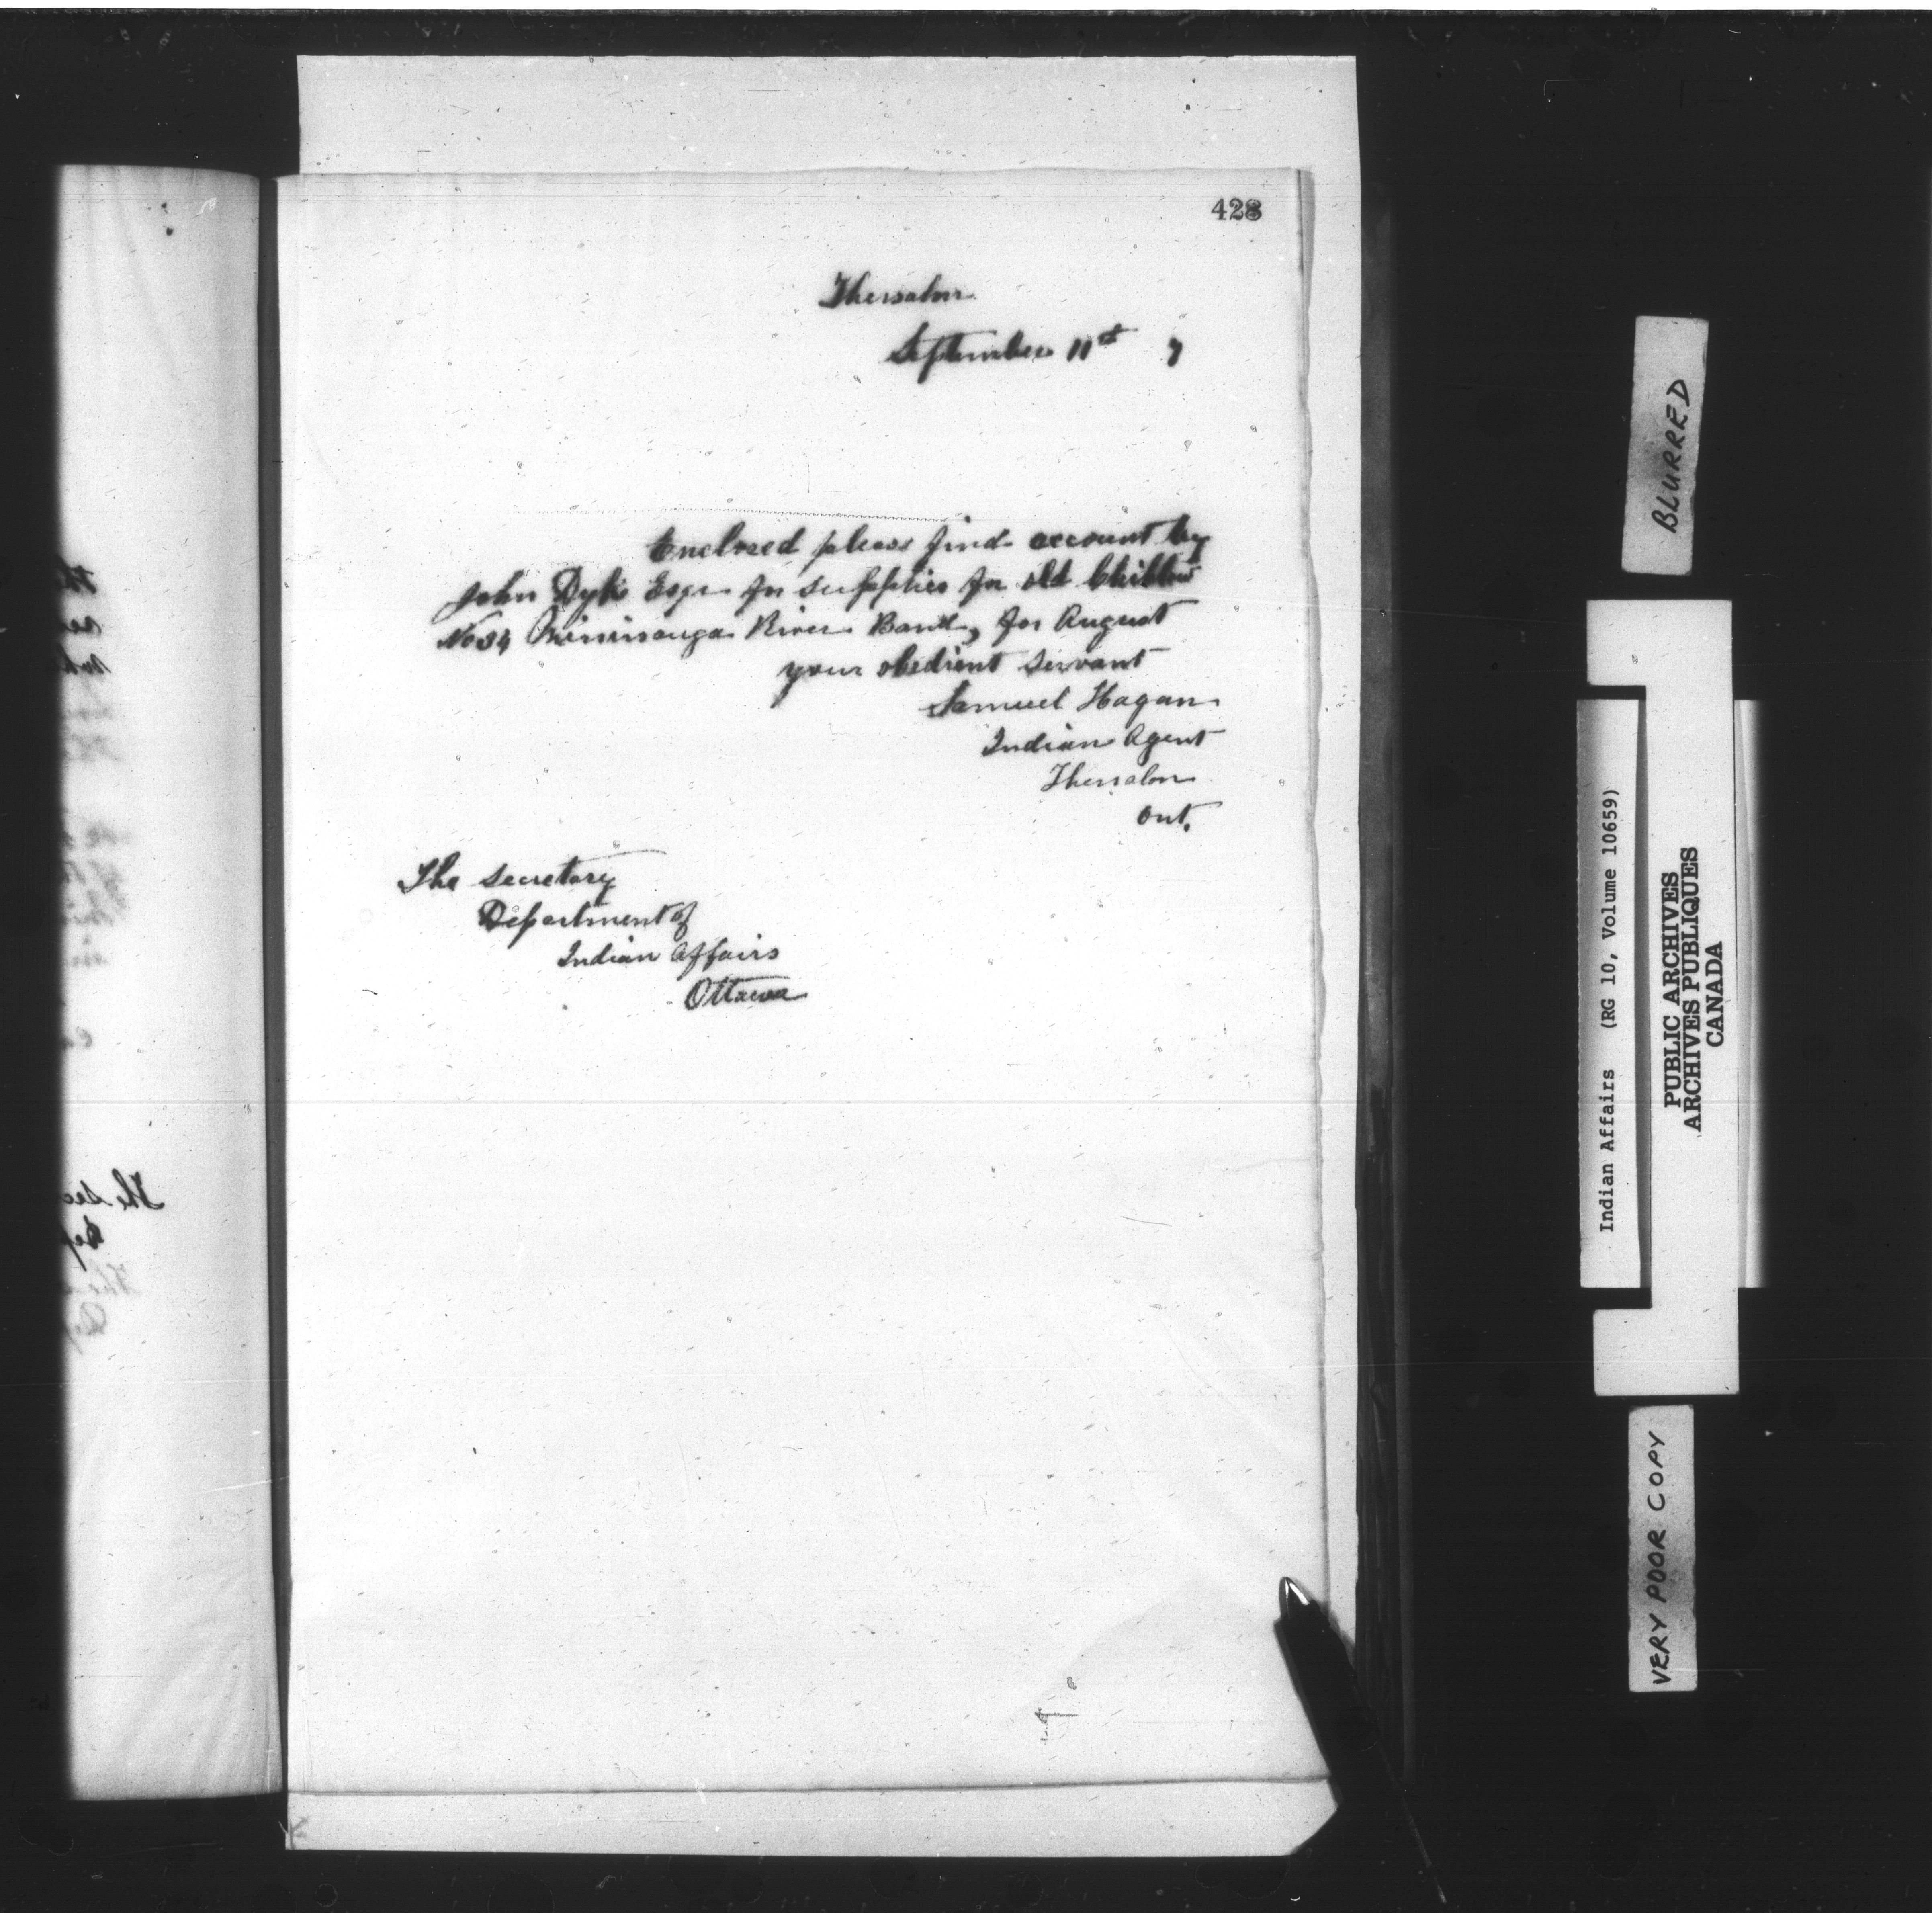 428
Thessalon
September 11th 7
Enclosed please find account by
John Dyke Esqr for supplies for old
No 34 Mississauga River Band, for August
your obedient servant
Samuel Hagan
Indian Agent
Thessalon
Ont.
The Secretary
Department of
Indian Affairs
Ottawa
The Sec
BLURRED
Indian Affairs (RG 10, Volume 10659)
PUBLIC ARCHIVES
ARCHIVES PUBLIQUES
CANADA
VERY POOR COPY